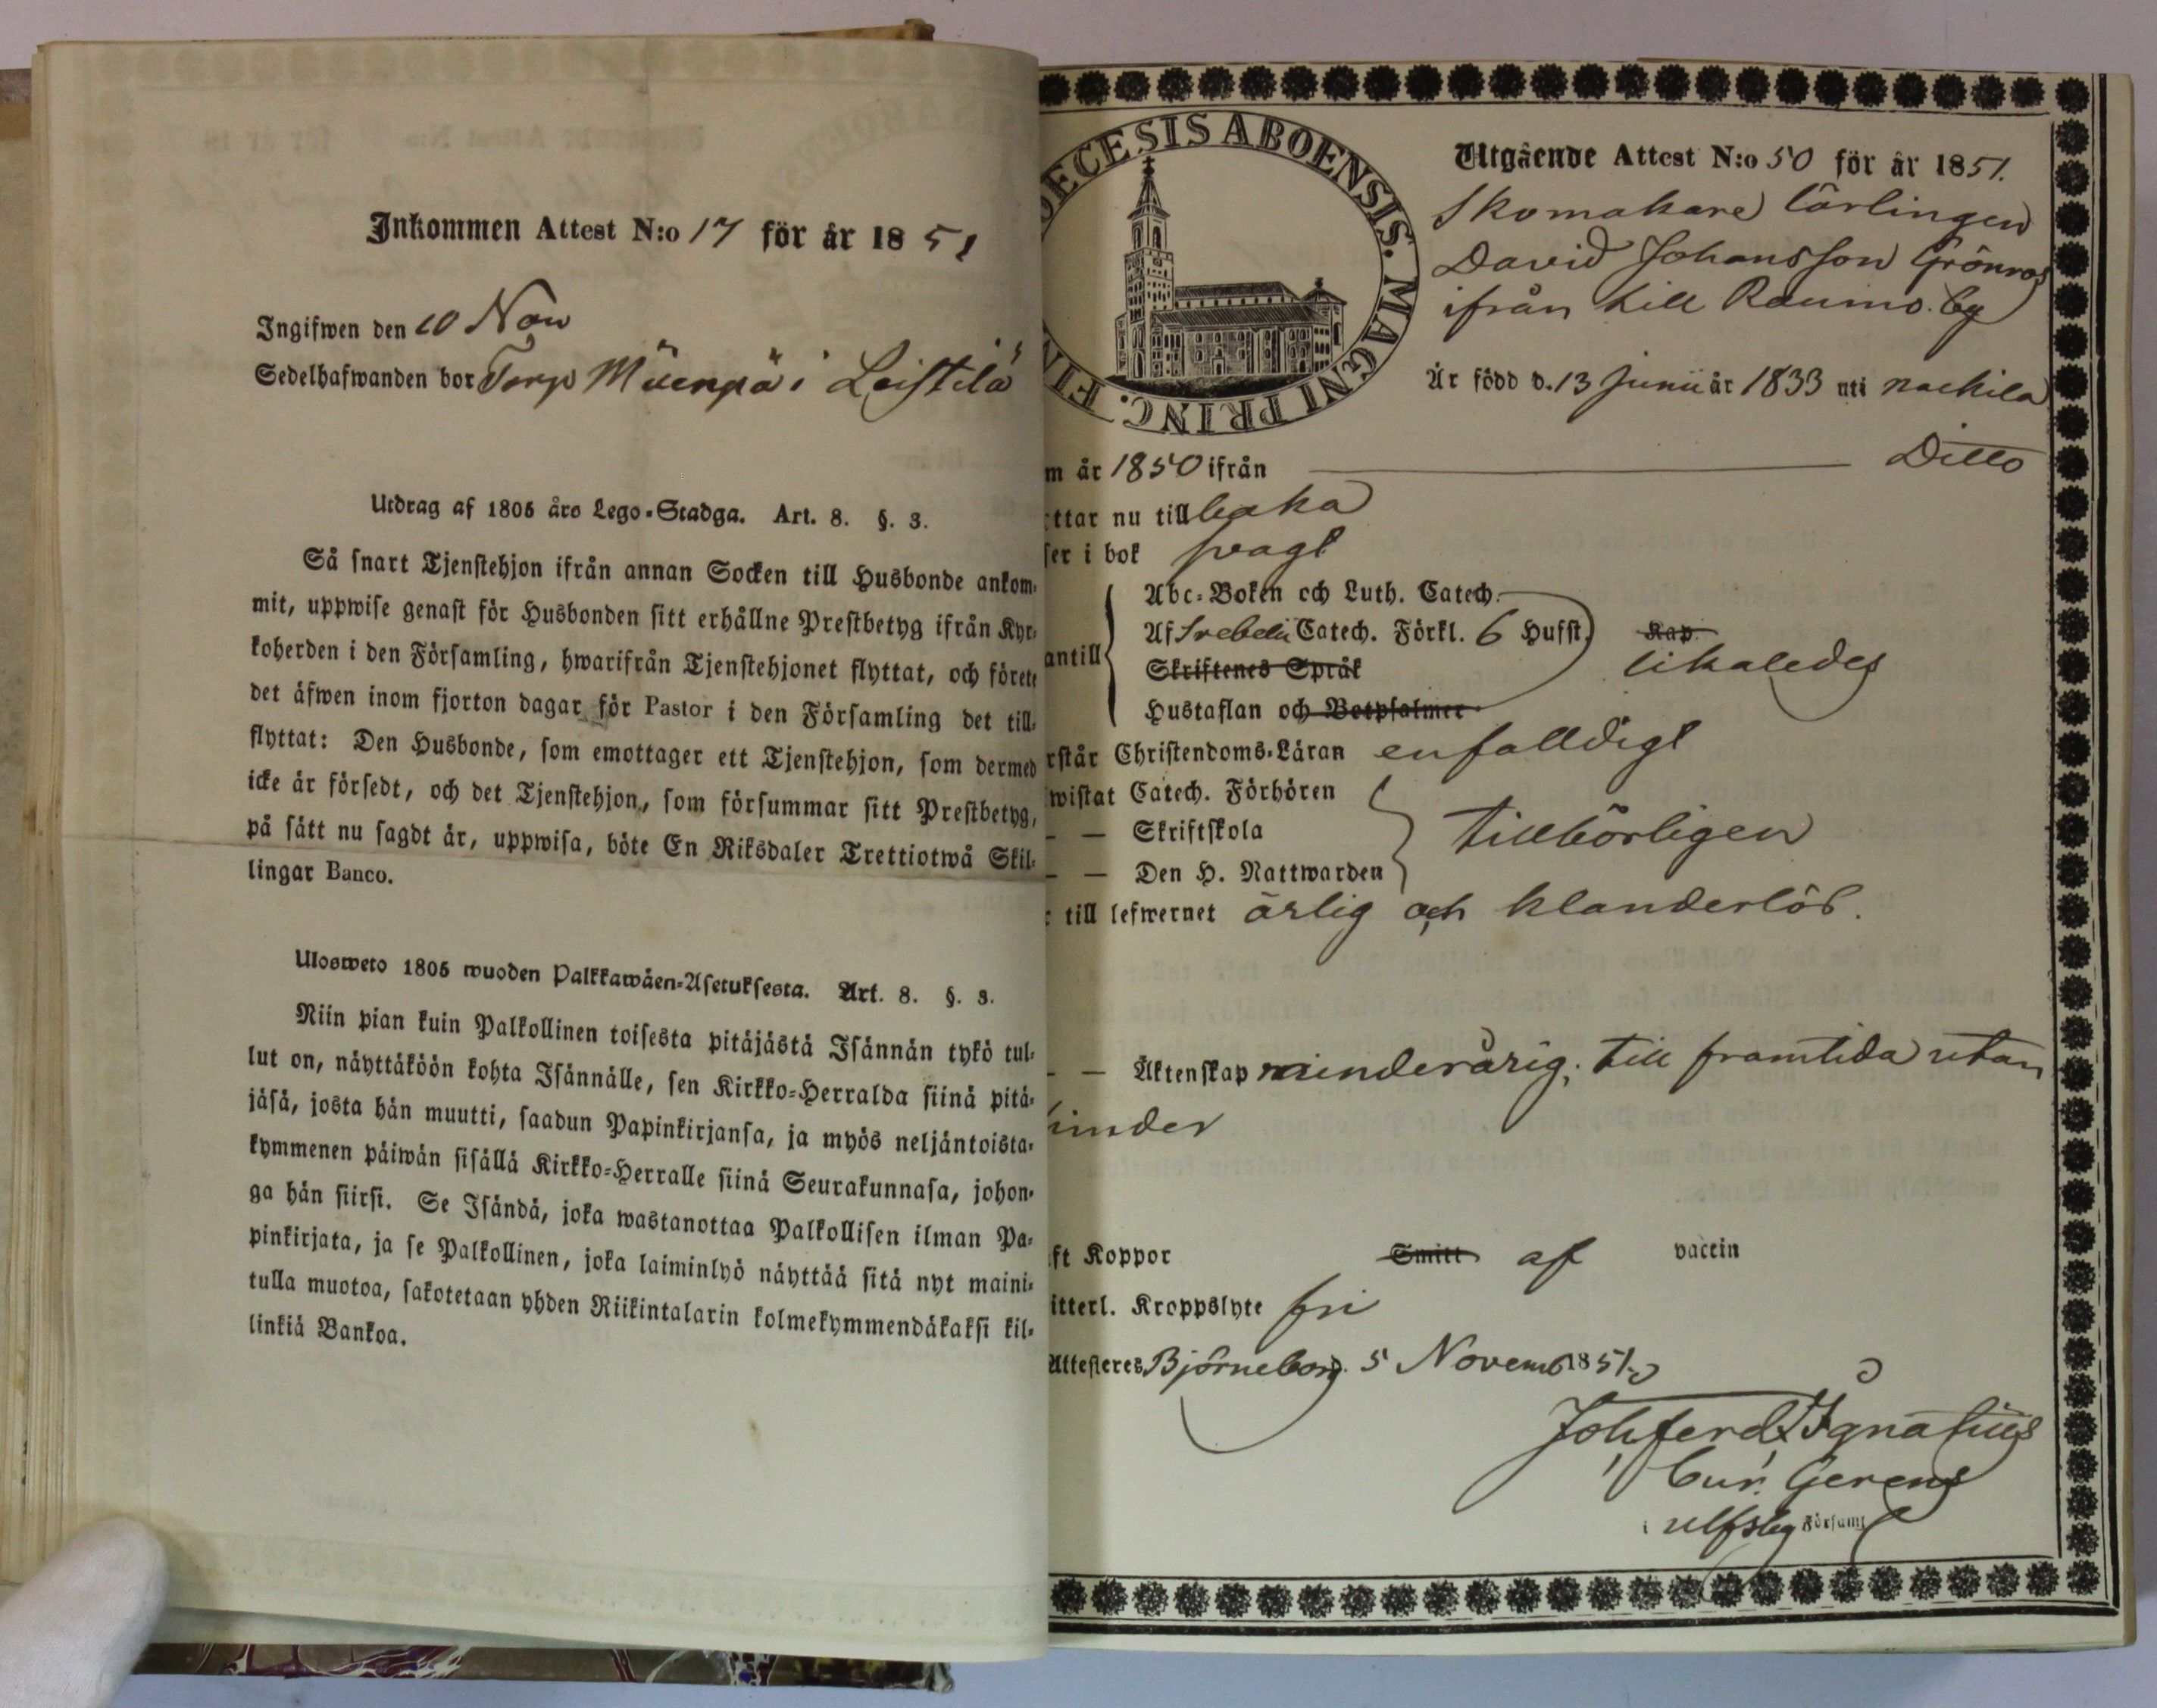 Inkommen Attest N:o 17 för år 1851
Ingifwen den 10 Nov
Sedelhafwanden bor Torp Mäenpää i Leistilä
Utdrag af 1805 års Lego-Stadga. Art. 8. §. 3.
Så snart Tjenstehjon ifrån annan Socken till Husbonde ankom-
mit, uppwise genast för Husbonden sitt erhållne Prestbetyg ifrån Kyr-
koherden i den Församling, hwarifrån Tjenstehjonet flyttat, och förete
det äfwen inom fjorton dagar för Pastor i den Församling det till-
flyttat: Den Husbonde, som emottager ett Tjenstehjon, som dermed
icke är försedt, och det Tjenstehjon, som försummar sitt Prestbetyg,
på sätt nu sagdt är, uppwisa, böte En Riksdaler Trettiotwå Skil-
lingar Banco.
Ulosweto 1805 wuoden Palkkawäen-Asetuksesta. Art. 8. §. 3.
Niin pian kuin Palkollinen toisesta pitäjästä Isännän tykö tul-
lut on, näyttäköön kohta Isännälle, sen Kirkko-Herralda siinä pitä-
jäsä, josta hän muutti, saadun Papinkirjansa, ja myös neljäntoista-
kymmenen päiwän sisällä Kirkko-Herralle siinä Seurakunnasa, johon-
ga hän siirsi. Se Isändä, joka wastanottaa Palkollisen ilman Pa-
pinkirjata, ja se Palkollinen, joka laiminlyö näyttää sitä nyt maini-
tulla muotoa, sakotetaan yhden Riikintalarin kolmekymmendäkaksi kil-
linkiä Bankoa.
OECESIS ABOENSIS. MAGNI PRINC. FIN
Utgående Attest N:o 50 för år 1851.
Skomakare Lärlingen
David Johansson Grönroos
ifrån till Raumo by
Är född d. 13 Junii år 1833 uti nackila
m år 1850 ifrån Ditto
ttar nu tillbaka
ser i bok svagt
Abc-Boken och Luth. Catech.
Af Svebelii Catech. Förkl. 6 Hufst. Kap.
antill likaledes
Skriftenes Språk
Hustaflan och Botpsalmer
rstår Christendoms-Läran enfalldigt
wistat Catech. Förhören
— — Skriftskola tillbörligen
— — Den H. Nattwarden
till lefwernet ärlig och klanderlös.
— — Äktenskap minderårig; till framtida utan
hinder
ft Koppor Smitt af vaccin
itterl. Kroppslyte fri
Attesteres Björneborg. 5 Novemb 1851.
Joh Ferd Ignatius
Cur. Gerens
i Ulfsby Församl